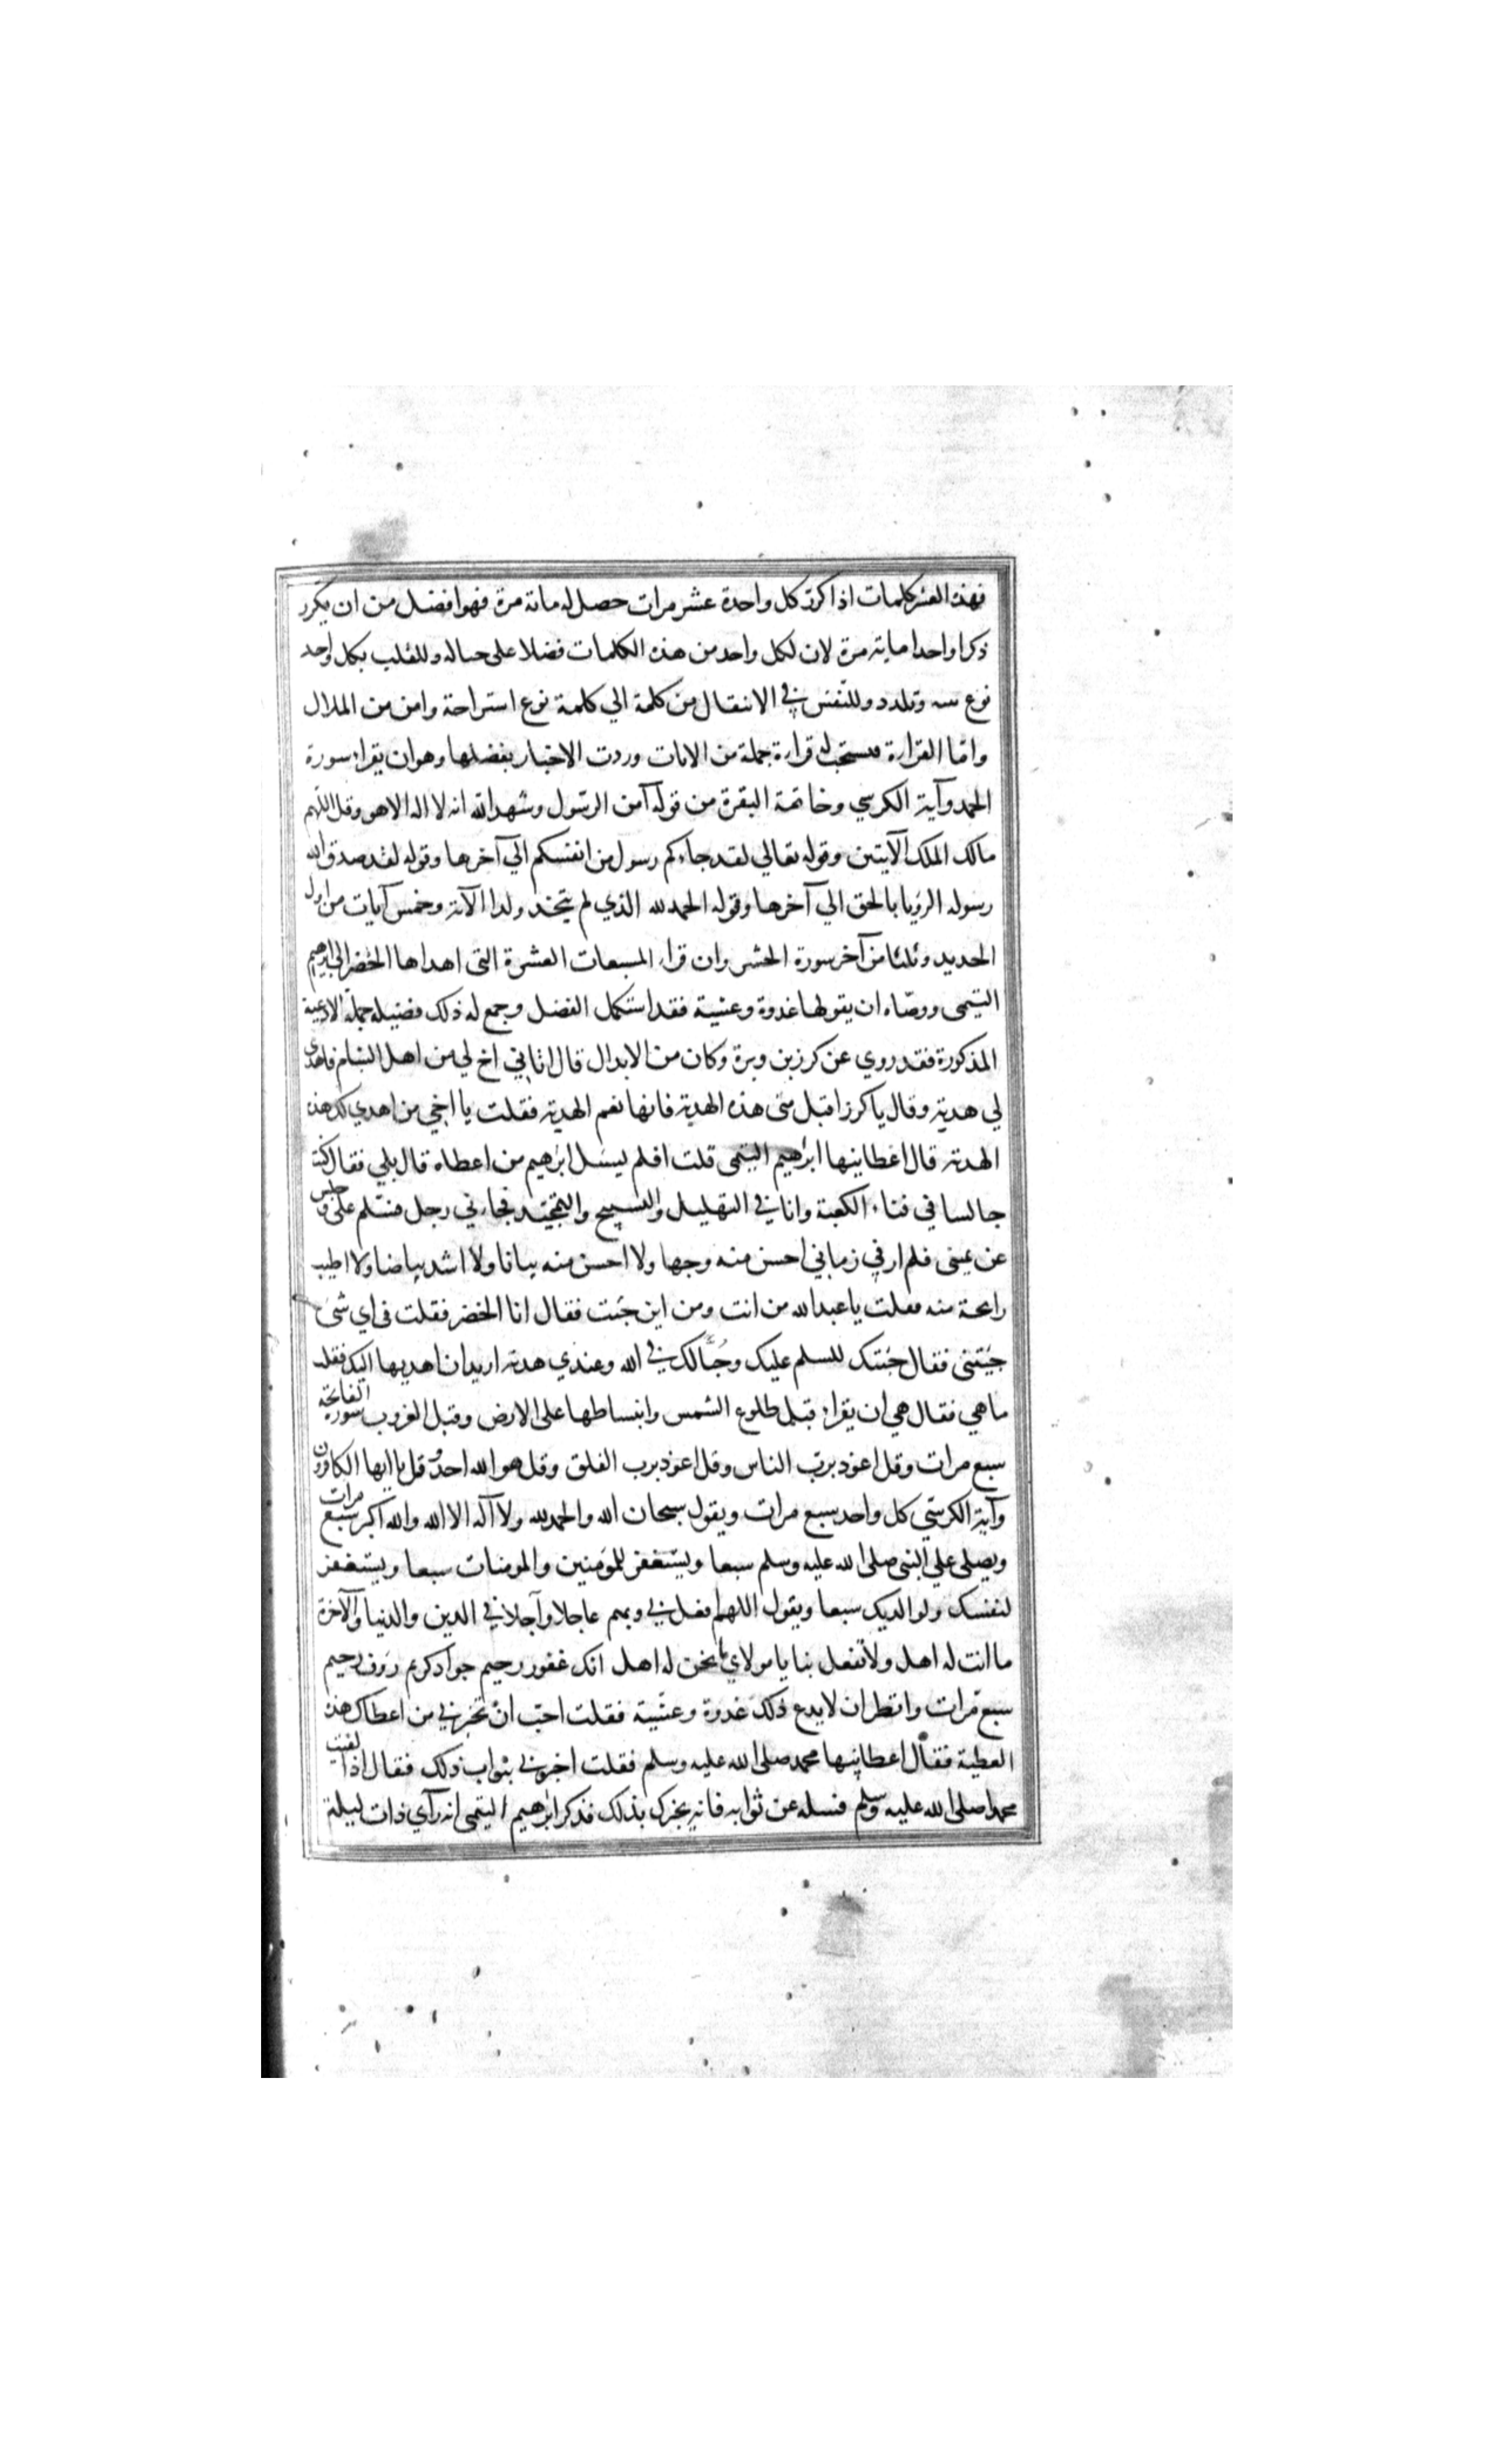 فهذه العشر كلمات اذا كرر كل واحدة عشر مرات حصل له مائة مرة فهو افضل من ان يكرر
ذكرا واحدا ماية مرة لان لكل واحد من هذه الكلمات فضلا على حياله وللقلب بكل واحد
نوع وتلدد وللنفس في الانتقال من كلمة الي كلمة نوع استراحة وامن من الملال
وامّا القراءة فيستحب له قراءة جملة من الايات وردت الاخبار بفضلها وهو ان يقراء سورة
الحمد وآية الكرسي وخاتمة البقرة من قوله آمن الرسول وشهد الله انه لا اله الا هو وقل اللهم
مالك الملك الآيتين وقوله تعالي لقد جاءكم رسول من انفسكم الي آخرها وقوله لقد صدق الله
رسوله الرؤيا بالحق الي آخرها وقوله الحمد لله الذي لم يتخذ ولدا الآية وخمس آيات من اول
الحديد وثلثا من آخر سورة الحشر وان قراء المسبعات العشرة التى اهداها الخضر الي ابرهيم
التيمى ووصّاه ان يقولها غدوة وعشية فقد استكمل الفضل وجمع له ذلك فضيلة جملة الادعية
المذكورة فقد روي عن كرز بن وبرة وكان من الابدال قال اتاني اخ لي من اهل الشام فاهدى
لي هدية وقال يا كرز اقبل منى هذه الهدية فانها نعم الهدية فقلت يا اخي من اهدي لك هذه
الهدية قال اعطانيها ابرهيم التيمى قلت افلم يسئل ابرهيم من اعطاه قال بلي فقال كنت
جالسا في فناء الكعبة وانا في التهليل والتسبيح والتمجيد فجاءني رجل فسلم على وجلس
عن يمينى فلم ار في زماني احسن منه وجها ولا احسن منه بيانا ولا اشد بياضا ولا اطيب
رايحة منه فقلت يا عبد الله من انت ومن اين جئت فقال انا الخضر فقلت فى اي شئ
جئتنى فقال جئتك للسلم عليك وحُبًّا لك في الله وعندي هدية اريد ان اهديها اليك فقلت
ما هي فقال هي ان يقراء قبل طلوع الشمس وانبساطها على الارض وقبل الغروب سورة الفاتحة
سبع مرات وقل اعوذ برب الناس وقل اعوذ برب الفلق وقل هو الله احد وقل يا ايها الكافرون
وآية الكرسي كل واحد سبع مرات ويقول سبحان الله والحمد لله ولا آله الا الله والله اكبر سبع مرات
ويصلى علي النبى صلى الله عليه وسلم سبعا ويستغفر للمؤمنين والمومنات سبعا ويستغفر
لنفسك ولوالديك سبعا ويقول اللهم افعل بي وبهم عاجلا وآجلا في الدين والدنيا والآخرة
ما انت له اهل ولا تفعل بنا يا مولاي ما نحن له اهل انك غفور رحيم جواد كريم رؤف رحيم
سبع مرات وانظر ان لا يدع ذلك غدوة وعشية فقلت احب ان تخبرني من اعطاك هذه
العطية فقال اعطانيها محمد صلى الله عليه وسلم فقلت اخبرني بثواب ذلك فقال اذا لقيت
محمدا صلى الله عليه وسلم فسله عن ثوابه فانه يخبرك بذلك فذكر ابرهيم التيمى انه رآي ذات ليلة